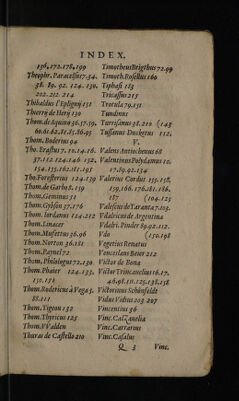 INDEX.
156, 172. 178. 199
Theophr. Paracelsus 7. 54.
38. 89. 92. 124. 130.
202. 212. 214
Thibaldus l'Espligny 151
Thierry de Hery 130
Thom. de Aquino 36. 57. 59.
60. 61. 62. 81. 85. 86. 95
Thom. Boderius 94
Tho. Erastus 7. 10. 14. 16.
37. 112. 124. 146. 152.
154. 155. 162. 181. 195
Tho. Forestierus 124. 139
Thom. de Garbo 8. 159
Thom. Geminus 51
Thom. Gybson 37. 176
Thom. Iordanus 124. 212
Thom. Linacer
Thom. Mufettus 56. 96
Thom. Norton 36. 181
Thom. Paynel 72
Thom. Philologus 72. 130.
Thom. Phaier 124. 133.
150. 151
Thom. Rodericus à Vega 5.
88. 111
Thom. Tigeon 132
Thom. Thyricus 125
Thom. VValden
Thuras de Castello 210
Timotheus Brigthus 72. 99
Timoth. Rosellus 160
Tiphasi 183
Tricassus 215
Trotula 79. 131
Tundinus
Turrisanus 58. 210 (145
Tussanus Ducherus 112.
V.
Valens Antiochenus 68
Valentinus Polydamas 10.
17. 89. 92. 134
Valerius Cordus 155. 158.
159. 166. 176. 181. 186.
187 (104. 125
Valescus de Taranta 7. 103.
Vitalricus de Argentina
Vdalr. Pinder 89. 92. 112.
Vdo (150. 198
Vegetius Renatus
Venceslaus Bauer 212
Victor de Bona
Victor Trincauelius 16. 17.
46. 98. 111. 125. 135. 158
Victorinus Schönfeldt
Vidus Vidius 203 207
Vincentius 36
Vinc. Calzanelia
Vinc. Carrarius
Vinc. Casalus
Q 3 Vinc.